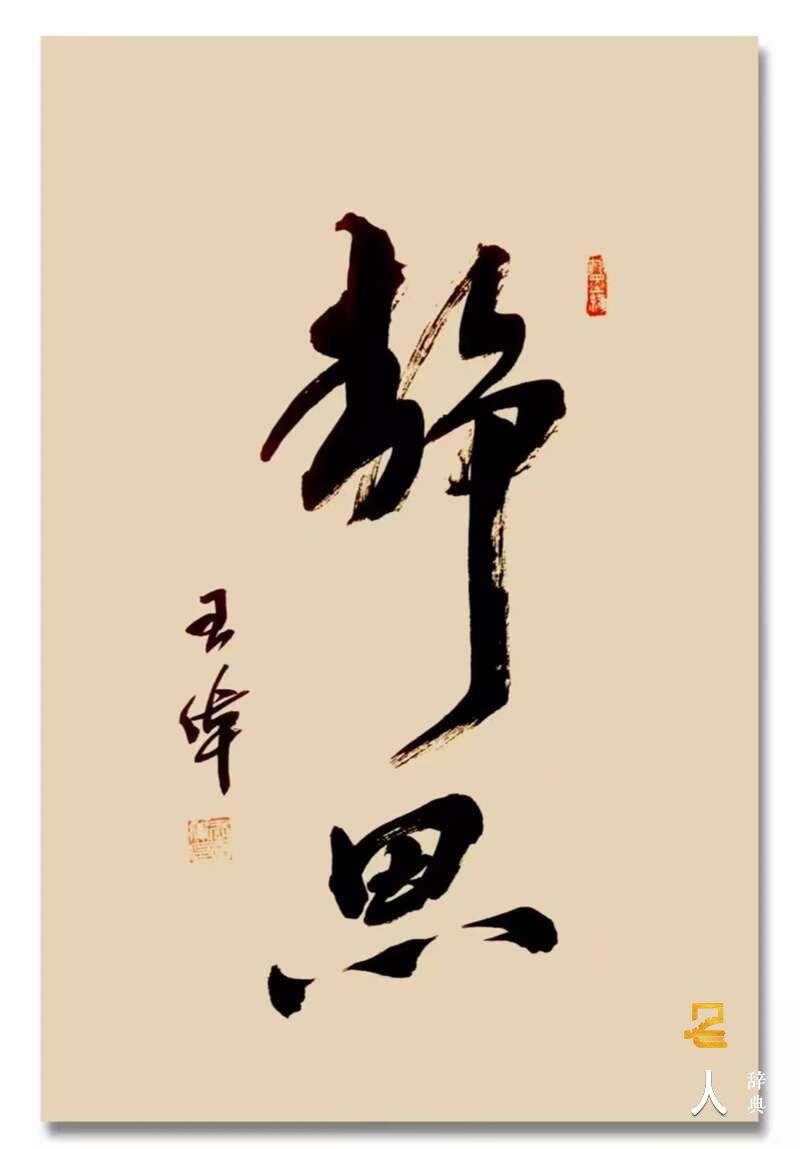 静思
王伟
名人辞典